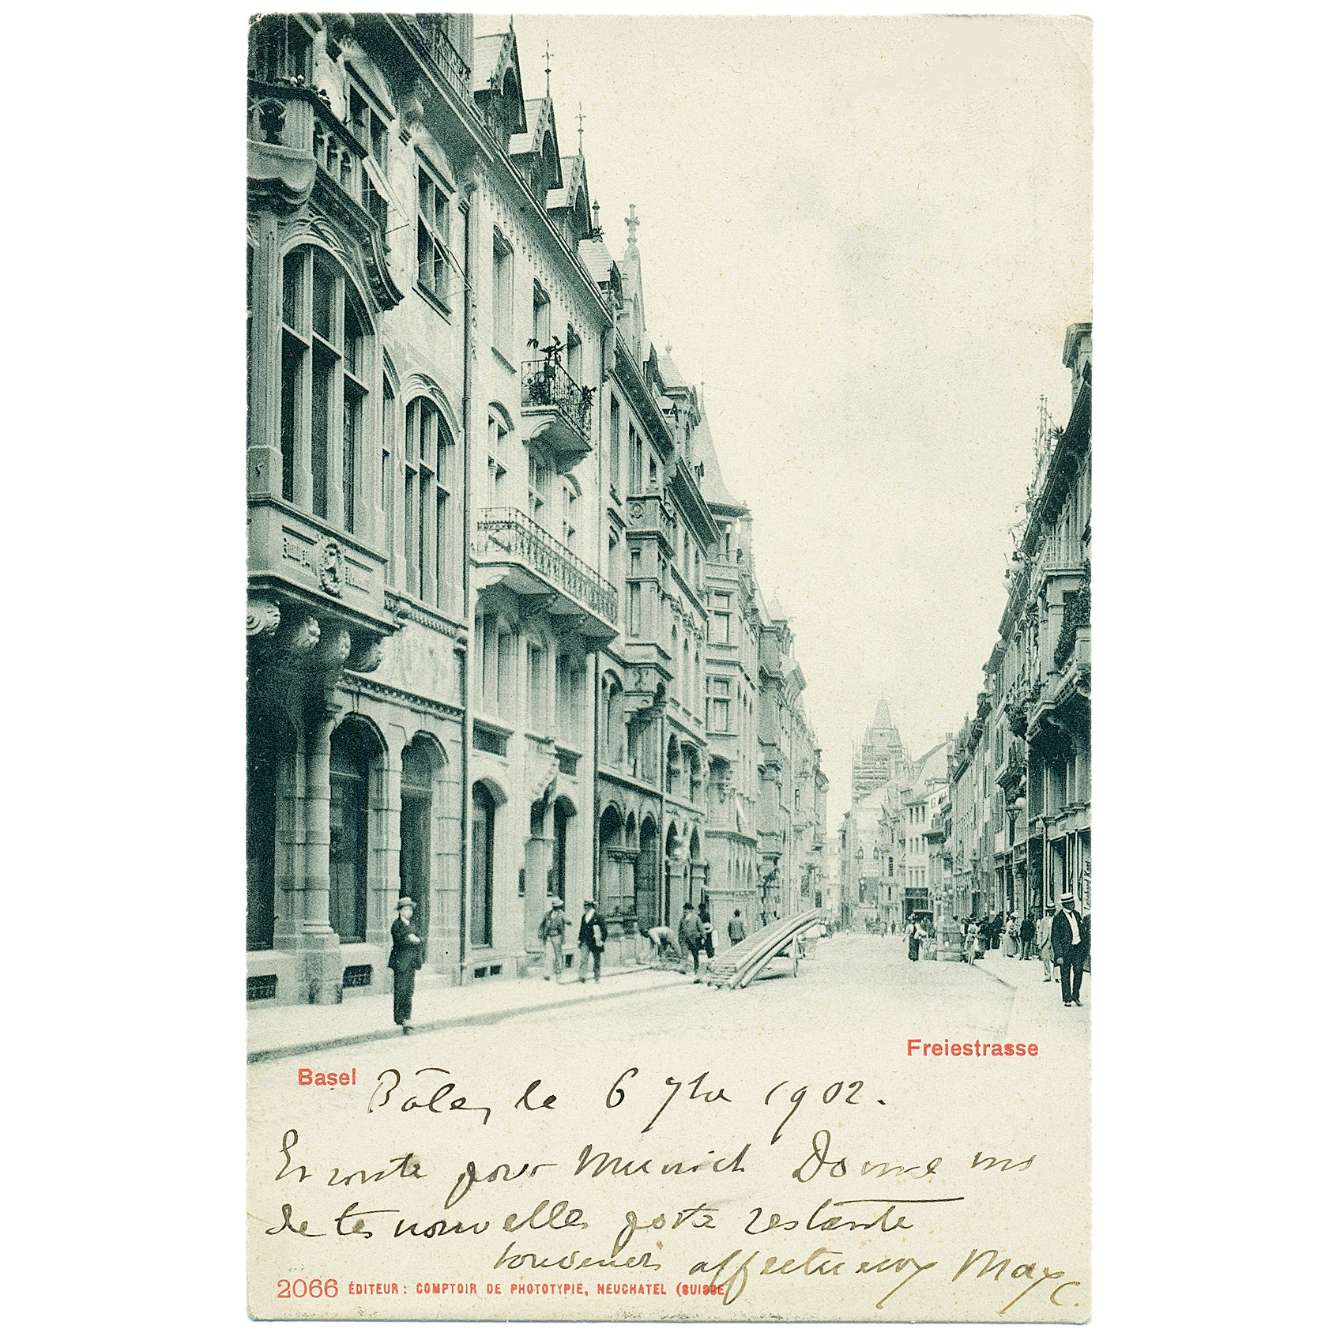 Freiestrasse
Basel
Bâle, le 6 7bre 1902.
En route pour Munich Donne moi
de tes nouvelles poste restante
Souvenirs affectueux Max C.
2066 ÉDITEUR: COMPTOIR DE PHOTOTYPIE, NEUCHATEL (SUISSE)